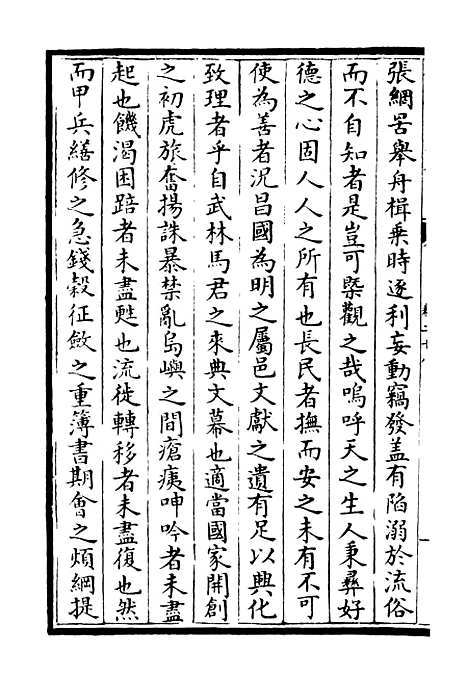 張網罟舉舟楫乗時逐利妄動竊發盖有陷溺於流俗
而不自知者是豈可槩觀之哉嗚呼天之生人秉彛好
德之心固人人之所有也長民者撫而安之未有不可
使為善者況昌國為明之屬邑文獻之遺有足以興化
致理者乎自武林馬君之來典文幕也適當國家開創
之初虎旅奮揚誅暴禁亂島嶼之間瘡痍呻吟者未盡
起也饑渴困踣者未盡甦也流徙轉移者未盡復也然
而甲兵繕修之急錢穀征斂之重簿書期會之煩綱提